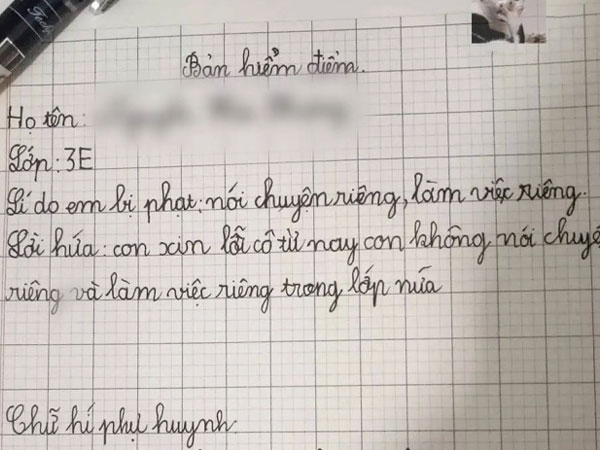 Bản hiểm điểm.
Họ tên:
Lớp: 3E
Lí do em bị phạt: nói chuyện riêng, làm việc riêng.
Lời hứa: con xin lỗi cô từ nay con không nói chuyệ
riêng và làm việc riêng trong lớp nứa
Chữ hí phụ huynh